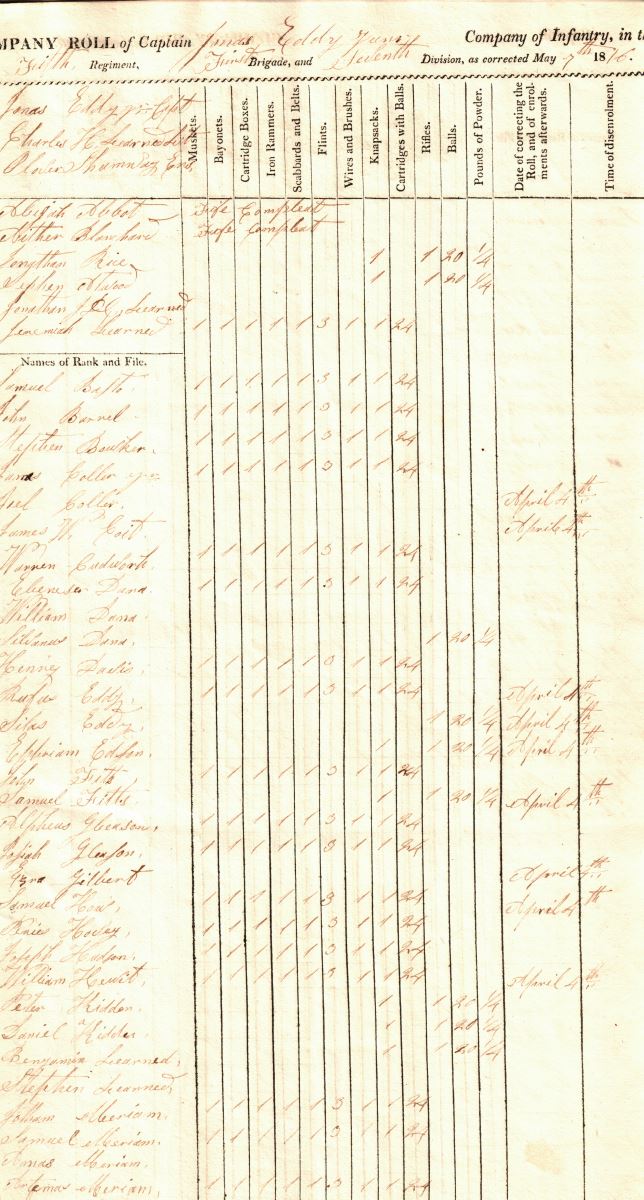 MPANY ROLL of Captain Jonas Eddy Junr Company of Infantry, in t
Fifth Regiment, First Brigade, and Seventh Division, as corrected May 7th 1816.
Muskets. Bayonets. Cartridge Boxes. Iron Rammers. Scabbards and Belts. Flints. Wires and Brushes. Knapsacks. Cartridges with Balls. Rifles. Balls. Pounds of Powder. Date of correcting the Roll, and of enrolments afterwards. Time of disenrolment.
Jonas Eddy jr Capt
Charles Learned
Ens
Abijah Abbot Fife Compleat
Blanchard Fife Compleat
Jonathan Rice 1 1 20 1/4
Stephen Atwood 1 1 20 1/4
Jonathan Learned
Jeremiah Learned 1 1 1 1 1 3 1 1 24
Names of Rank and File.
Samuel 1 1 1 1 1 3 1 1 24
John 1 1 1 1 1 3 1 1 24
Stephen Bowker 1 1 1 1 1 3 1 1 24
James Coller jr 1 1 1 1 1 3 1 1 24
Joel Coller. April 4th
James W. Coit April 4th
Warren Cudworth 1 1 1 1 1 3 1 1 24
Ebenezer Dana 1 1 1 1 1 3 1 1 24
William Dana
Silvanus Dana, 1 20 1/4
Henney Davis, 1 1 1 1 1 3 1 1 24
Rufus Eddy, 1 1 1 1 1 3 1 1 24 April 4th
Silas Eddy, 1 20 1/4 April 4th
Ephriam Edson, 1 1 20 1/4 April 4th
John Fitts, 1 1 1 1 1 3 1 1 24
Samuel Fitts 1 1 20 1/4 April 4th
Alpheus Gleason, 1 1 1 1 1 3 1 1 24
Josiah Gleason, 1 1 1 1 1 3 1 1 24
Ezra Gilbert April 4th
Samuel How, 1 1 1 1 1 3 1 1 24 April 4th
Hovey, 1 1 1 1 1 3 1 1 24
Joseph Hudson, 1 1 1 1 1 3 1 1 24
William Hewit, 1 1 1 1 1 3 1 1 24 April 4th
Peter Kidder 1 1 20 1/4
Daniel Kidder, 1 1 20 1/4
Benjamin Learned, 1 1 20 1/4
Stephen Learned,
Jotham Meriam, 1 1 1 1 1 3 1 1 24
Samuel Meriam. 1 1 1 1 1 3 1 1 24
Amas Meriam,
Artemas Meriam, 1 1 1 1 1 3 1 1 24